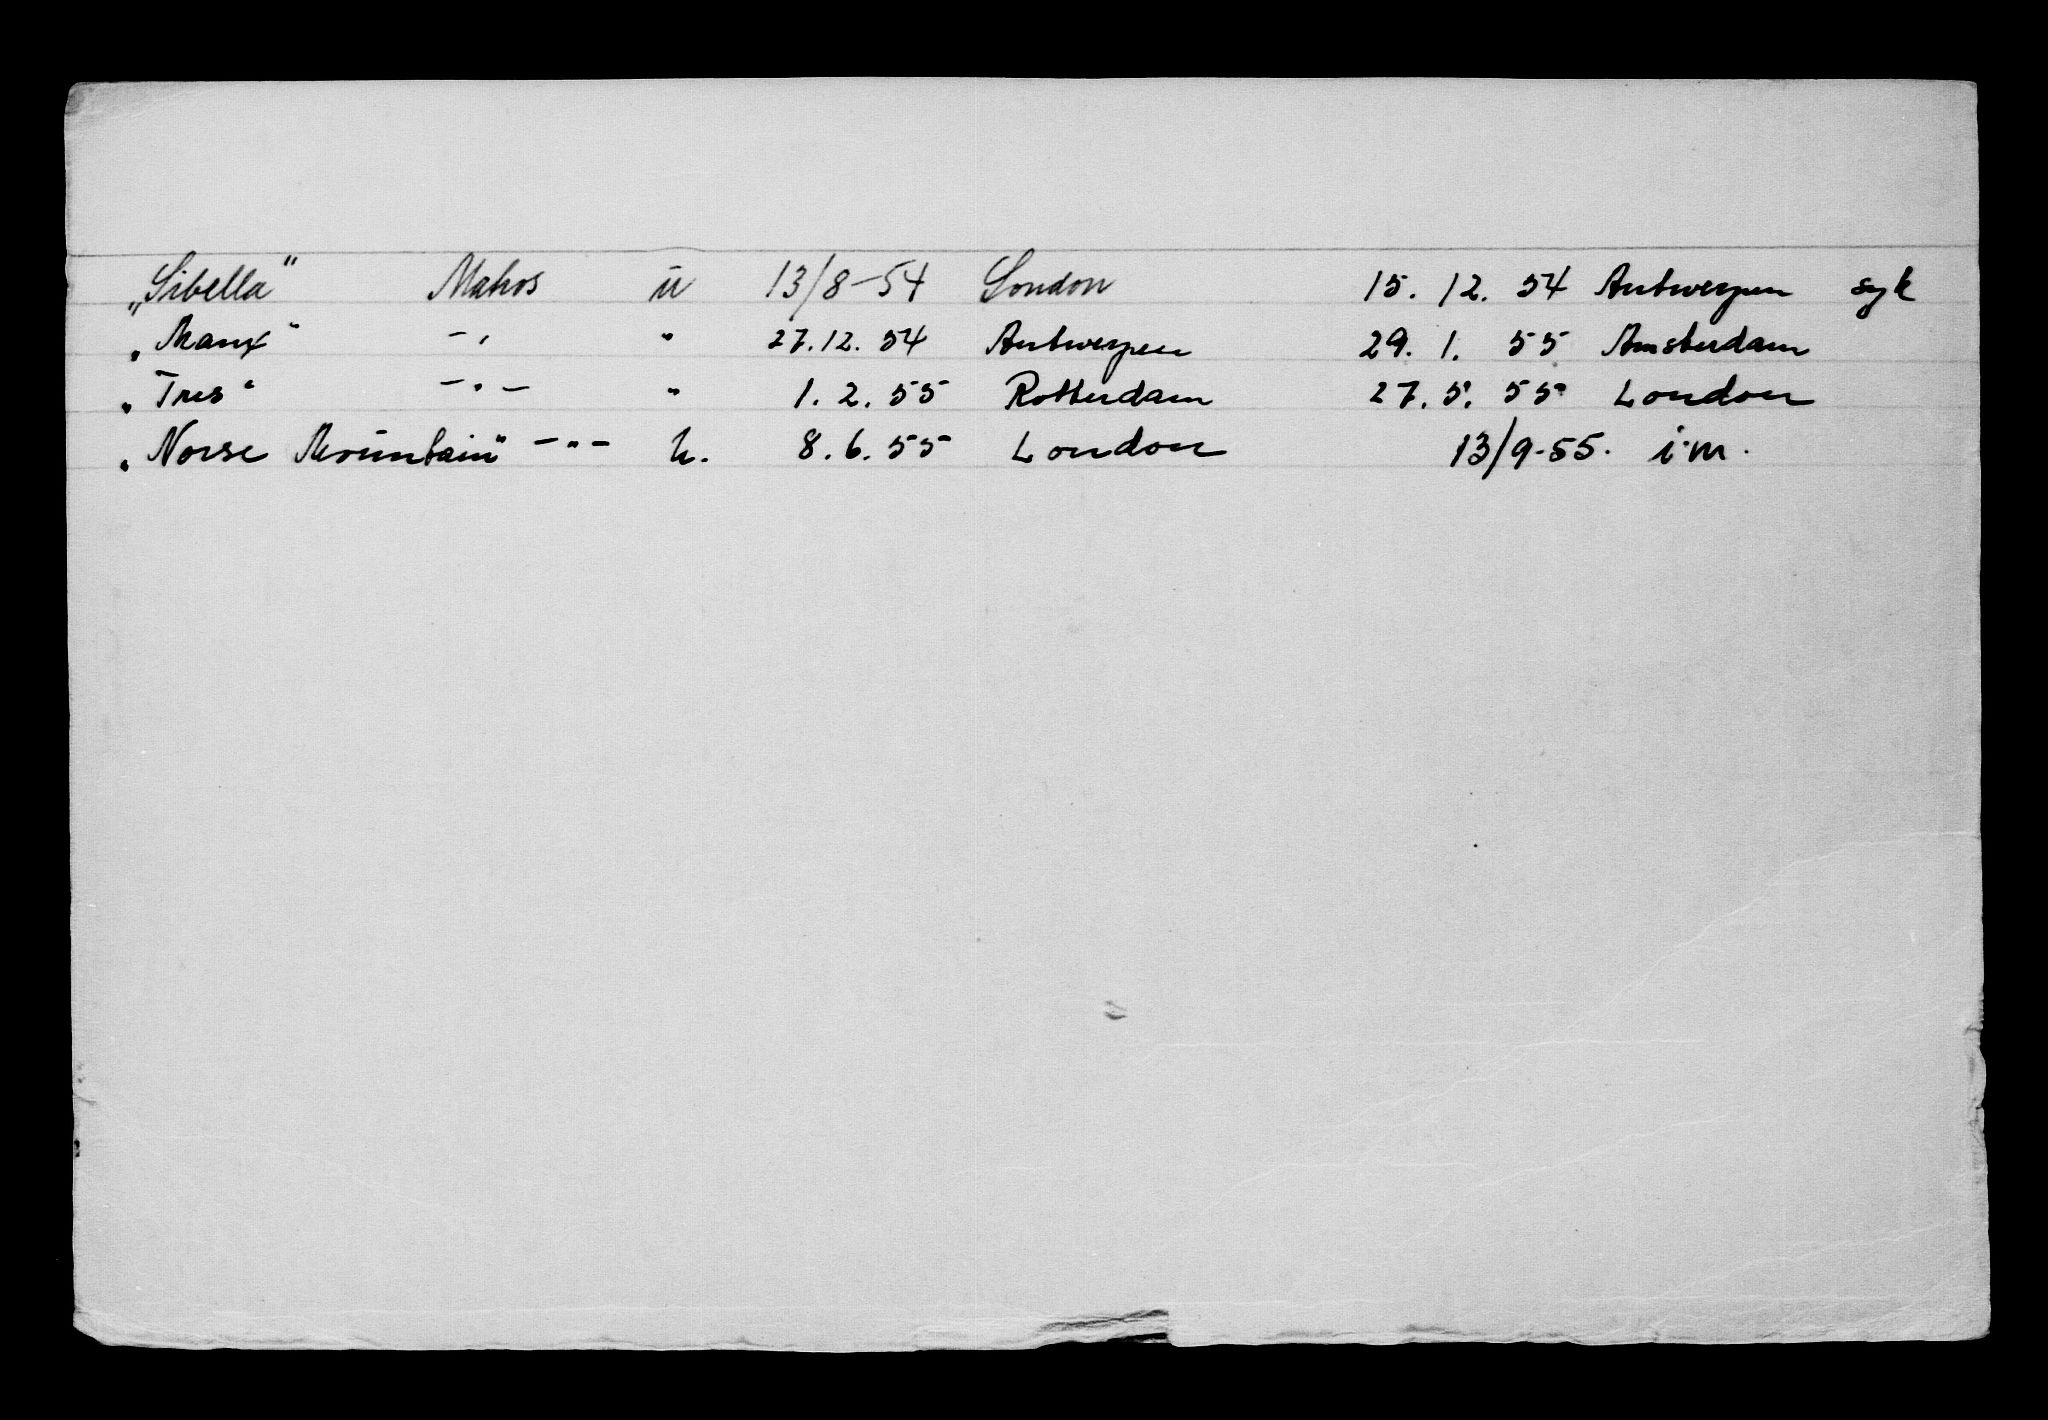 „Sibella“ Matros u 13/8-54 London 15. 12. 54 Antwerpen syk
„Manx“ -„ " 27.12. 54 Antwerpen 29. 1. 55 Amsterdam
„Tres“ -"- " 1. 2. 55 Rotterdam 27. 5. 55 London
„Norse Mountain“ -"- u. 8. 6. 55 London 13/9-55. i.m.